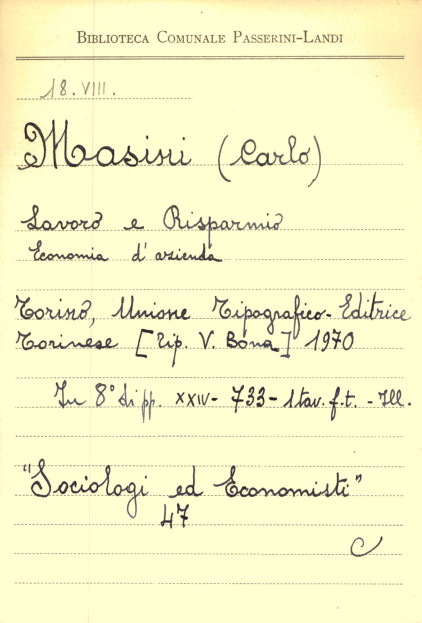 BIBLIOTECA COMUNALE PASSERINI-LANDI
18. VIII.
Masini (Carlo)
Lavoro e Risparmio
Economia d'azienda
Torino, Unione Tipografico-Editrice
Torinese [Tip. V. Bona] 1970
In 8° di pp. XXIV- 733- 1 tav. f.t. - Ill.
"Sociologi ed Economisti"
47
C